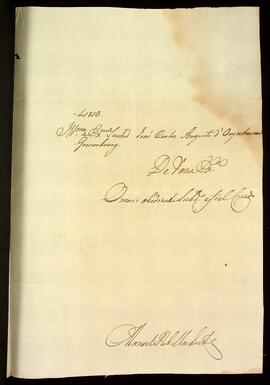 de 1813.
Illmo e Exmo Senhor João Carlos Augusto d'Oeynhausen
Gravenbourg.
De Vossa Exª
O mais obediente Subdº e fiel Criado
Manoel